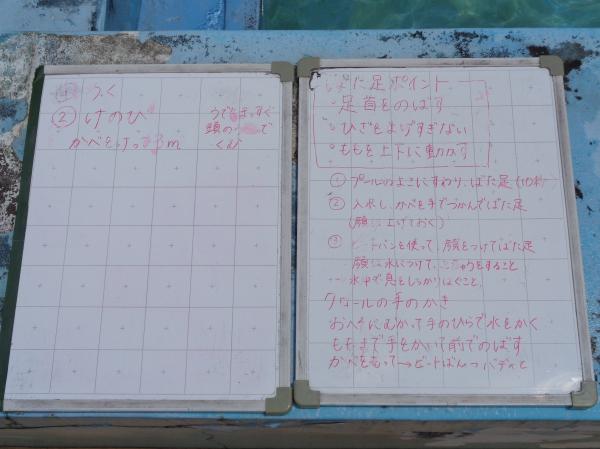 ① うく
② けのび
うでまっすぐ
頭の で
くむ
かべをけって3m
ばた足ポイント
・足首をのばす
・ひざをまげすぎない
・ももを上下に動かす
① プールのよこにすわり、ばた足(10秒)
② 入水し、かべを手でつかんでばた足
(顔は上げておく)
③ ビートバンを使って、顔をつけてばた足
顔は水につけて、をすること
水中で息をしっかりはくこと。
クロールの手のかき
おへそにむかって手のひらで水をかく
ももまで手をかいて前でのばす
かべをもって→ビートばん→バディと